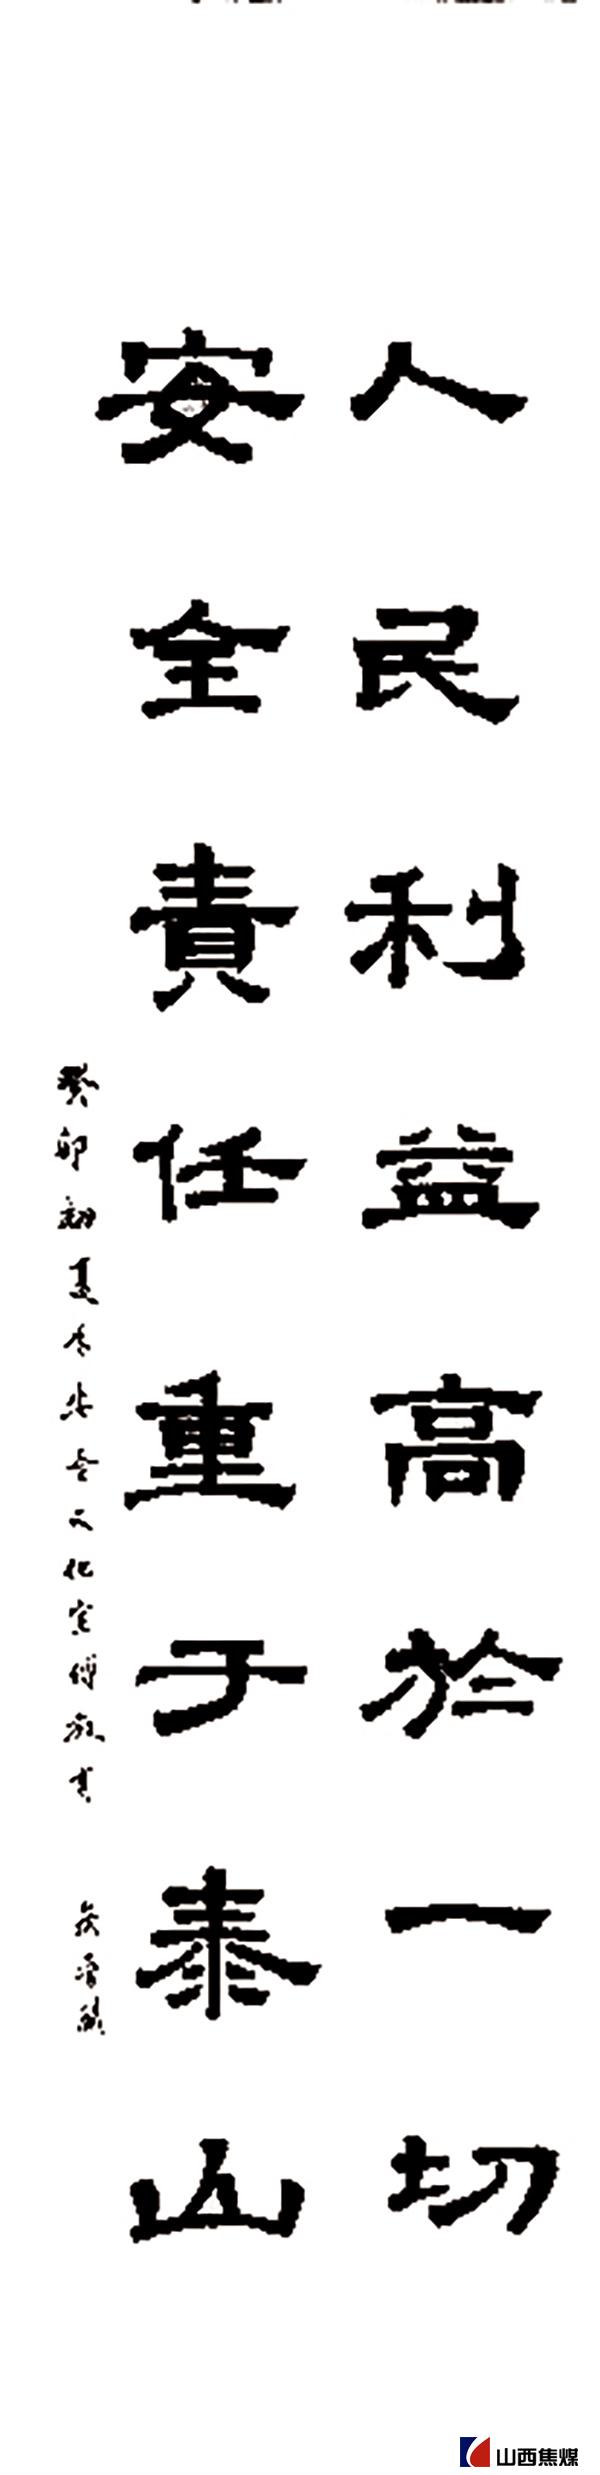 人民利益高於一切
安全責任重于泰山
癸卯初夏
文化宣傳
山西焦煤